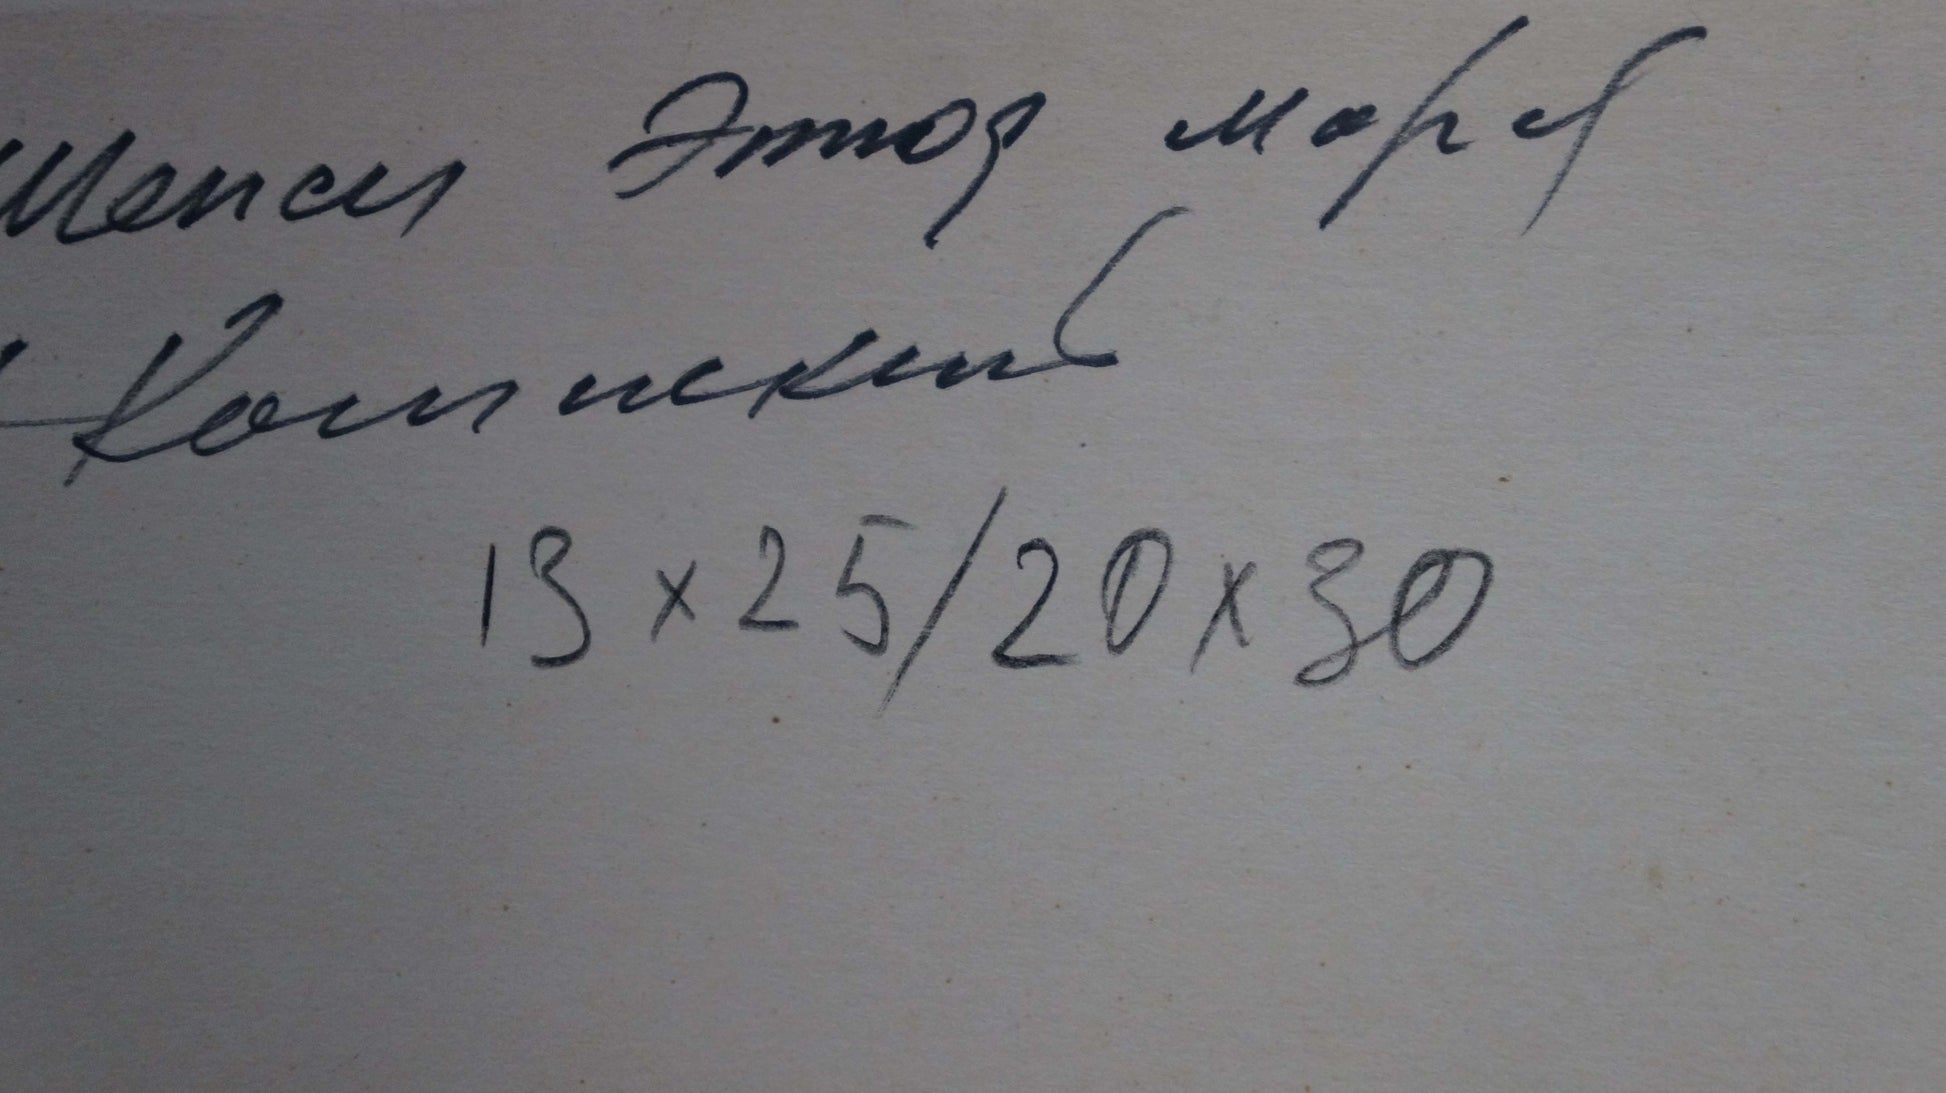 Шепси Этюд моря
Копинский
13x25/20x30